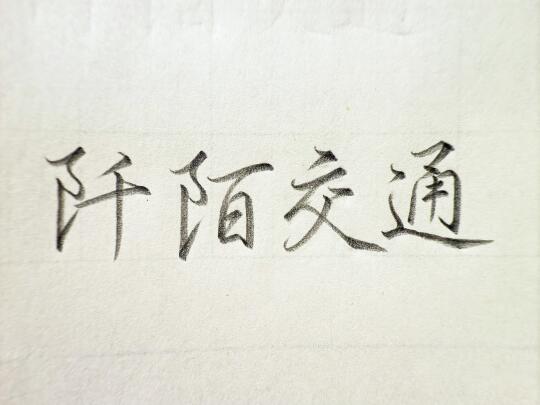 阡陌交通